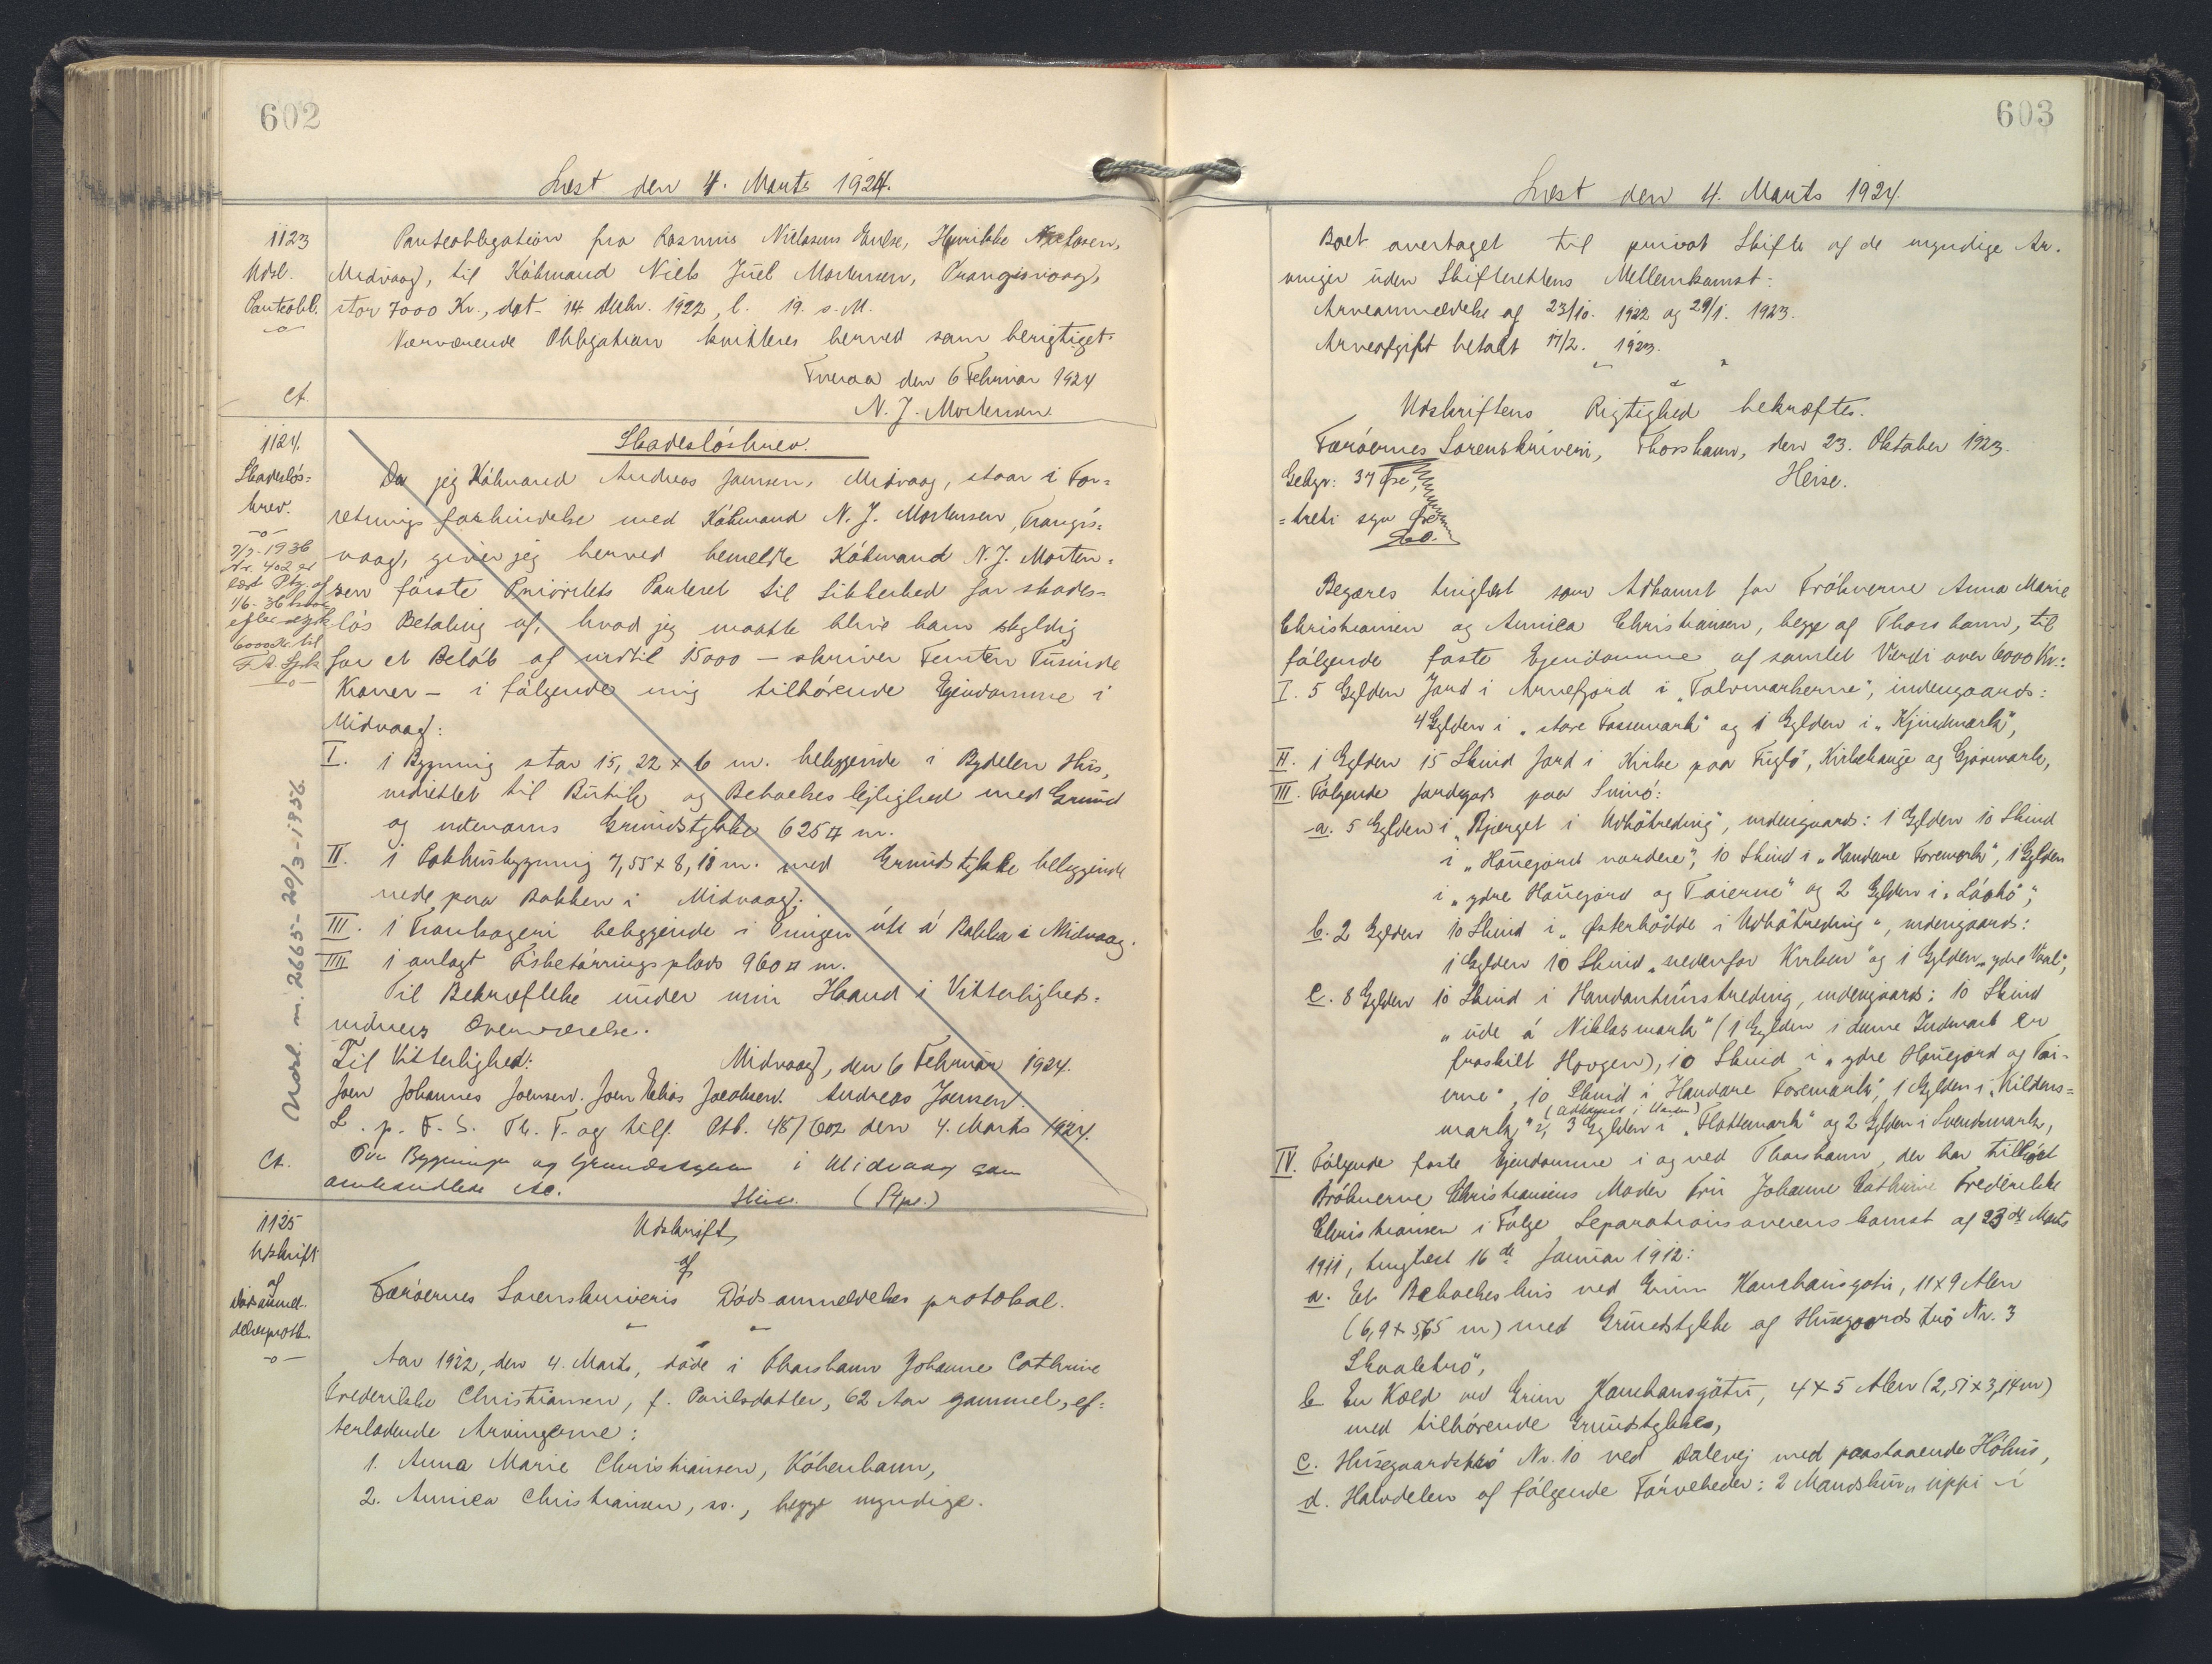 602
Læst den 4. Marts 1924.
1123
Udsl.
Panteobl.
Ct.
Panteobligation fra Rasmus Niclasens Enke, Henrikke Niclasen,
Midvaag, til Købmand Niels Juel Mortensen, Trangisvaag,
stor 7000 Kr., dat. 14 Dcbr. 1922, l. 19. s. M.
Nærværende Obligation kvitteres herved som berigtiget.
Tveraa den 6 Februar 1924
N. J. Mortensen
1124.
Skadesløs-
brev.
3/3-1936
Nr. 402 er
læst Ptg. af
1/6-36 hvor-
efter
6000 Kr. til
Udsl. n. 2665-20/3-1956.
Ct.
Skadesløsbrev.
Da jeg Købmand Andreas Joensen, Midvaag, staar i For-
retningsforbindelse med Købmand N. J. Mortensen, Trangis-
vaag, giver jeg herved bemeldte Købmand N. J. Morten-
sen første Prioritets Panteret til Sikkerhed for skades-
løs Betaling af, hvad jeg maatte blive ham skyldig
for et Beløb af indtil 15000 – skriver Femten Tusinde
Kroner – i følgende mig tilhørende Ejendomme i
Midvaag:
I. 1 Bygning stor 15,22 x 6 m. beliggende i Bydelen Hus,
indrettet til Butik og Beboelseslejlighed med Grund
og udenoms Grundstykke 625 □ m.
II. 1 Pakhusbygning 7,55 x 8,18 m. med Grundstykke beliggende
nede paa Bakken i Midvaag;
III. 1 Trankogeri beliggende i Eningen úti á Bakka i Midvaag.
IIII 1 anlagt Fisketørringsplads 960 □ m.
Til Bekræftelse under min Haand i Vitterligheds-
vidners Overværelse.
Til Vitterlighed: Midvaag, den 6 Februar 1924.
Joen Johannes Joensen. Joen Elias Jacobsen. Andreas Joensen.
L. p. F. S. Th. T. og tilf. Ptb. 48/602 den 4. Marts 1924.
Ovr Bygninger og Grundstykker i Midvaag som
omhandlede etc. Heise. (Stpr.)
1125
Udskrift
af
Dødsanmel-
delsesprotk.
Udskrift
af
Færøernes Sorenskriveris Dødsanmeldelsesprotokol.
Aar 1922, den 4. Marts, døde i Thorshavn Johanne Cathrine
Frederikke Christiansen, f. Poulsdatter, 62 Aar gammel, ef-
terladende Arvingerne:
1. Anna Marie Christiansen, København,
2. Annica Christiansen, ss., begge myndige.
603
Læst den 4. Marts 1924.
Boet overtaget til privat Skifte af de myndige Ar-
vinger uden Skifterettens Mellemkomst:
Arveanmeldelse af 23/10. 1922 og 29/1. 1923.
Arveafgift betalt 17/2. 1923.
Udskriftens Rigtighed bekræftes.
Færøernes Sorenskriveri, Thorshavn, den 23. Oktober 1923.
Gebyr: 37 Øre Heise.
= treti syv Øre
Begæres tinglæst som Adkomst for Frøknerne Anna Marie
Christiansen og Annica Christiansen, begge af Thorshavn, til
følgende faste Ejendomme af samlet Værdi over 6000 Kr.:
I. 5 Gylden Jord i Arnefjord i „Tolvmarkerne", indengaards:
4 Gylden i „store Fossemark" og 1 Gylden i „Kjinkmark",
II. 1 Gylden 15 Skind Jord i Kirke paa Fuglø, Kirkehauge og Gjovmark,
III. Følgende Jordegods paa Svinø:
a. 5 Gylden i „Bjærget i Udbøtreding", indengaards: 1 Gylden 10 Skind
i „Hauegjord nordere", 10 Skind i „Handare Foremark", 1 Gylden
i „ydre Hauegjord og Taierne" og 2 Gylden i „Láohó",
b. 2 Gylden 10 Skind i „Østerbødde i Udbøtreding", indengaards:
1 Gylden 10 Skind „nedenfor Kirken" og 1 Gylden „ydre Vaal",
c. 8 Gylden 10 Skind i Handanhúnstreding, indengaards: 10 Skind
„ude á Niklasmark" (1 Gylden i denne Indmark er
fraskilt Haugen), 10 Skind i „ydre Hauegjord og Tai-
erne", 10 Skind i „Handare Foremark", 1 Gylden i „Kildens-
mark", 3 Gylden i „Flottemark" og 2 Gylden i Svendsmark,
IV. Følgende faste Ejendomme i og ved Thorshavn, der har tilhørt
Frøknerne Christiansens Moder Fru Johanne Cathrine Frederikke
Christiansen i Følge Separationsoverenskomst af 23de Marts
1911, tinglæst 16de Januar 1912:
a. Et Beboelseshus ved Grim Kambansgøta, 11 x 9 Alen
(6,9 x 5,65 m) med Grundstykke af Husegaardstrø Nr. 3
Skaaletrø,
b En Kold ved Grim Kambansgøtu, 4 x 5 Alen (2,51 x 3,14 m)
med tilhørende Grundstykke,
c. Husegaardstrø Nr. 10 ved Dalevej med paastaaende Høhus,
d. Halvdelen af følgende Tørveheder: 2 Mandshu„ uppi í